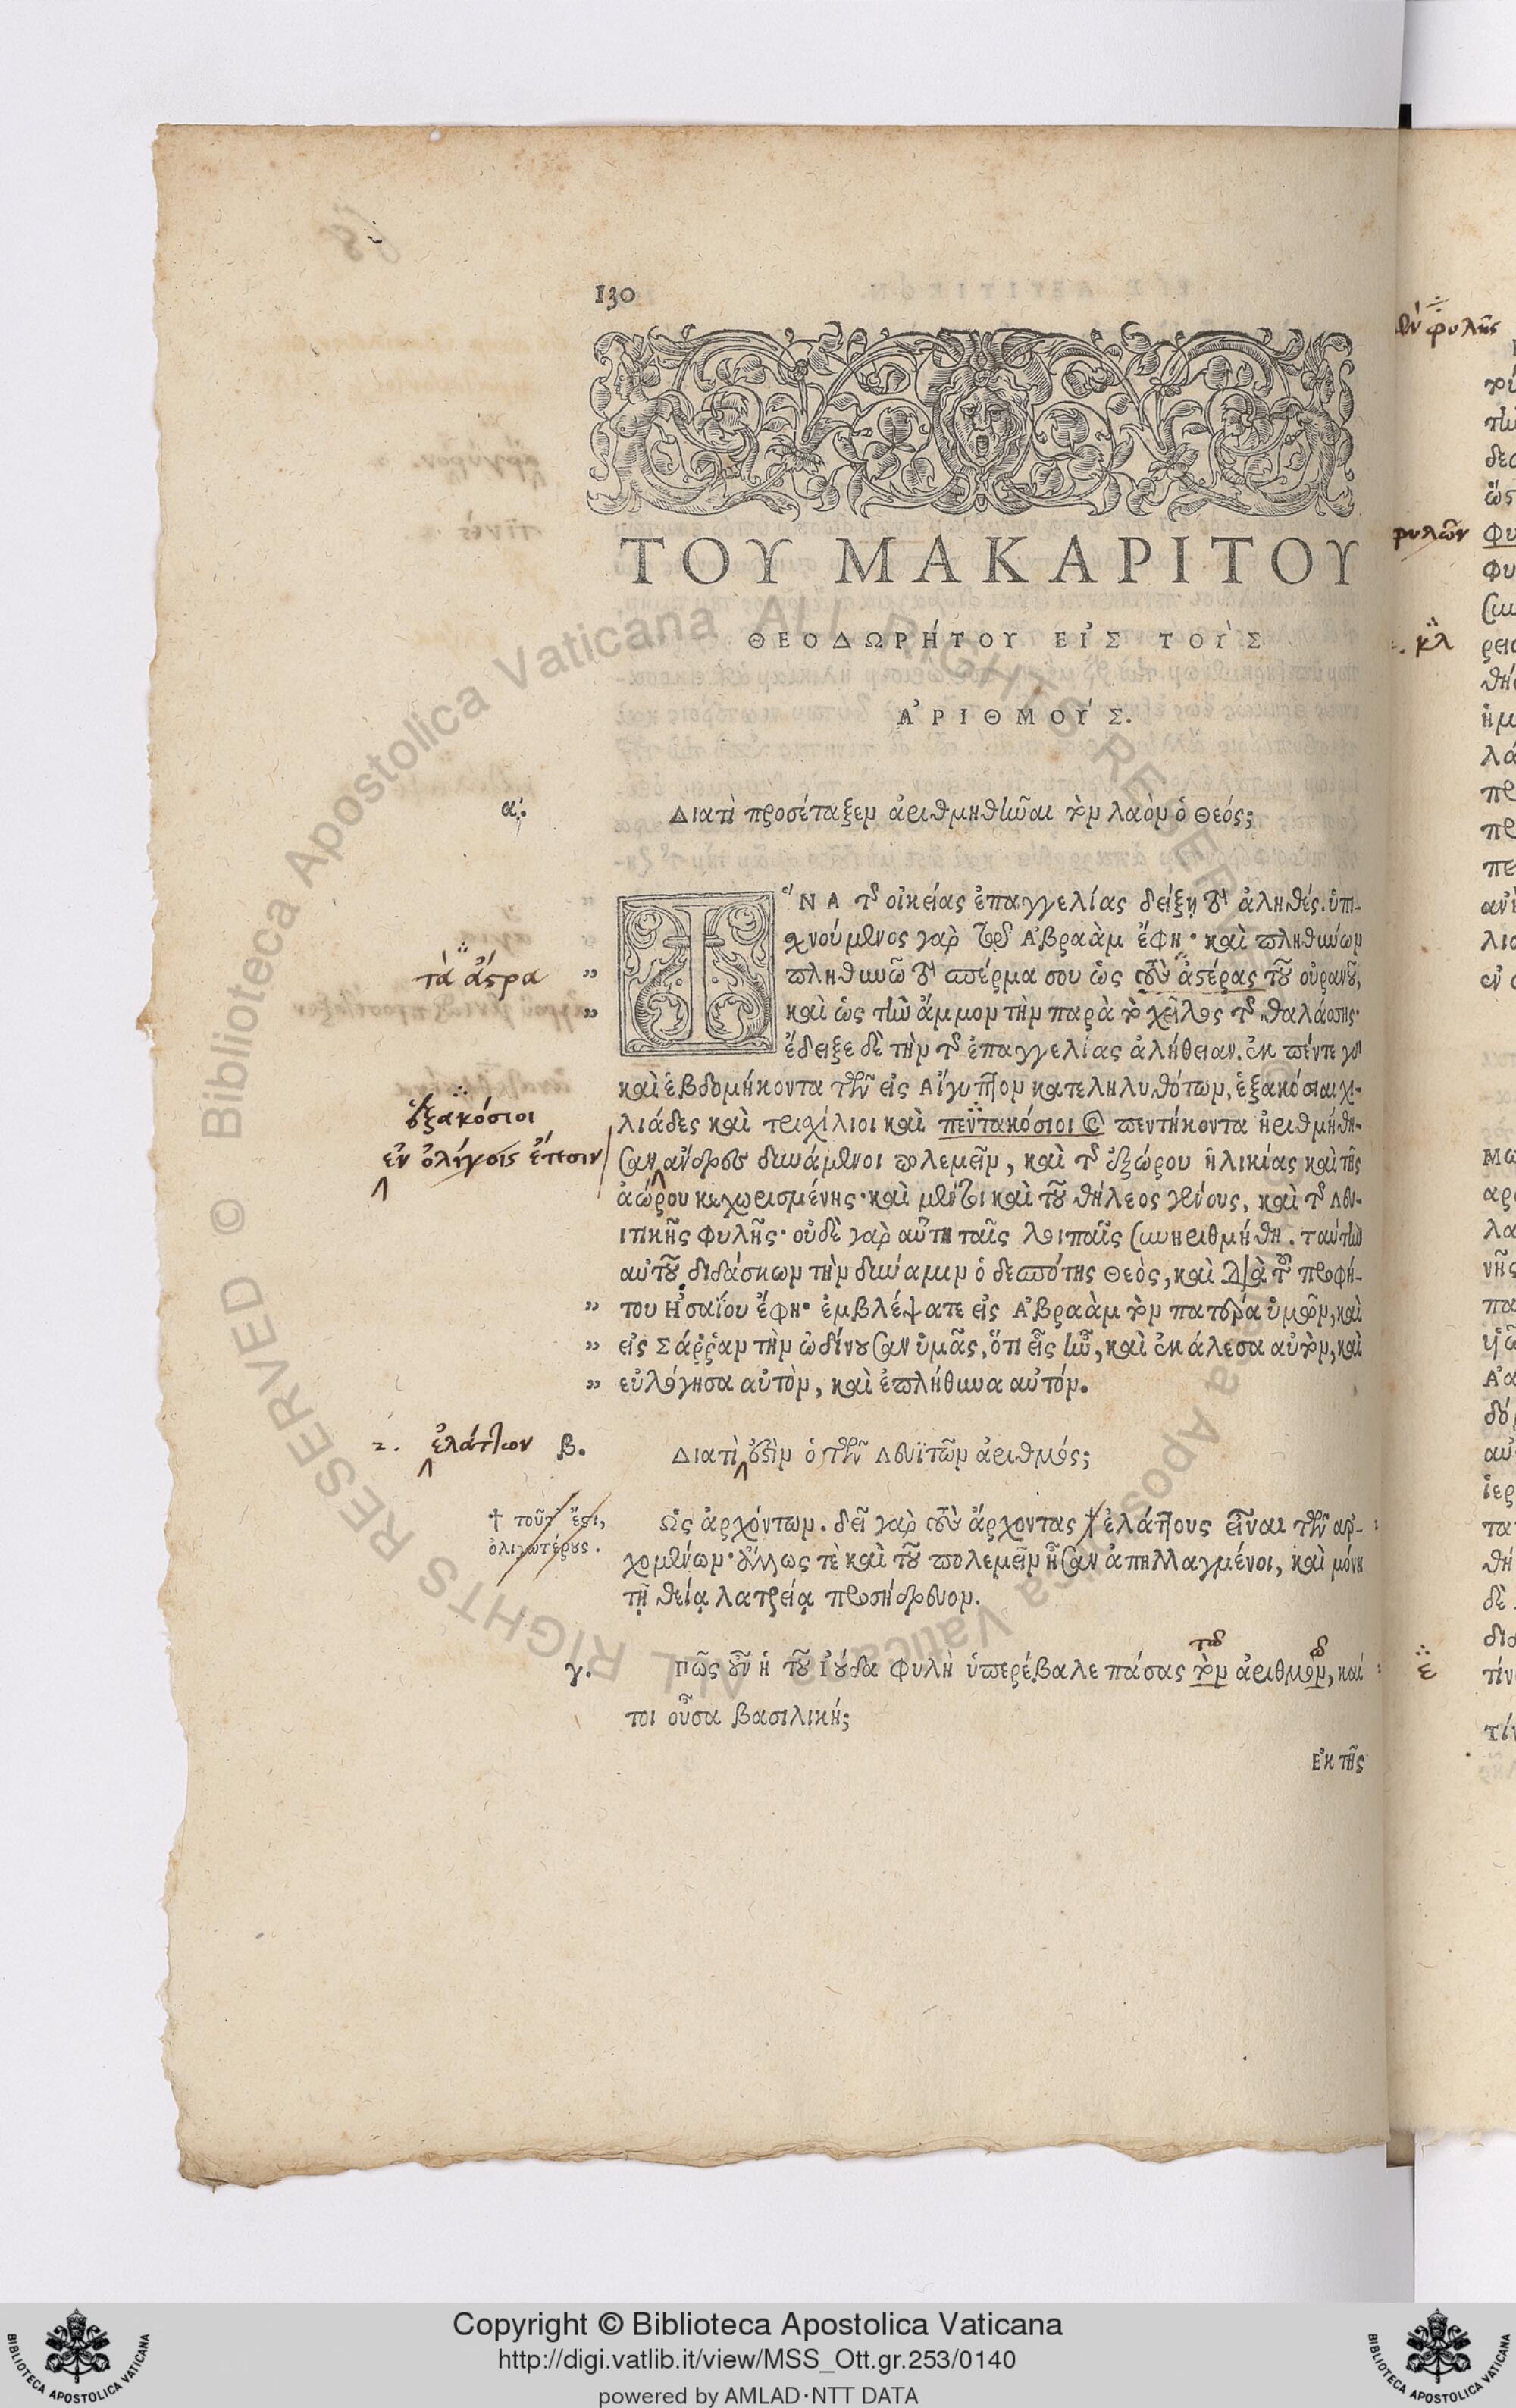 130
ΤΟΥ ΜΑΚΑΡΙΤΟΥ
ΘΕΟΔΩΡΉΤΟΥ ΕἸΣ ΤΟῪΣ
ἈΡΙΘΜΟΎΣ.
α. Διατὶ προσέταξεν ἀριθμηθῆναι τὸν λαὸν ὁ Θεός;
ἽΝΑ τῆς οἰκείας ἐπαγγελίας δείξῃ τὸ ἀληθές. ὑπι-
χνούμενος γὰρ τῷ Ἀβραὰμ ἔφη· καὶ πληθύνων
τὰ ἄστρα
πληθυνῶ τὸ σπέρμα σου ὡς τοὺς ἀστέρας τοῦ οὐρανοῦ,
καὶ ὡς τὴν ἄμμον τὴν παρὰ τὸ χεῖλος τῆς θαλάσσης·
ἔδειξε δὲ τὴν τῆς ἐπαγγελίας ἀλήθειαν. ἐκ πέντε γὰρ
καὶ ἑβδομήκοντα τῶν εἰς Αἴγυπτον κατεληλυθότων, ἑξακόσιαι χι-
ἑξακόσιοι
λιάδες καὶ τρισχίλιοι καὶ πεντακόσιοι καὶ πεντήκοντα ἠριθμήθη-
ἐν ὀλίγοις ἔτεσιν
σαν ἄνδρες δυνάμενοι πολεμεῖν, καὶ τῆς ἐξώρου ἡλικίας καὶ τῆς
ἀώρου κεχωρισμένης· καὶ μέντοι καὶ τοῦ θήλεος γένους, καὶ τῆς λευ-
ιτικῆς φυλῆς· οὐδὲ γὰρ αὕτη ταῖς λοιπαῖς συνηριθμήθη. ταύτην
αὐτοῦ διδάσκων τὴν δύναμιν ὁ δεσπότης Θεὸς, καὶ διὰ τοῦ προφή-
του Ἡσαΐου ἔφη· ἐμβλέψατε εἰς Ἀβραὰμ τὸν πατέρα ὑμῶν, καὶ
εἰς Σάῤῥαν τὴν ὠδίνουσαν ὑμᾶς, ὅτι εἷς ἦν, καὶ ἐκάλεσα αὐτὸν, καὶ
εὐλόγησα αὐτὸν, καὶ ἐπλήθυνα αὐτόν.
2. ἐλάττων
β. Διατὶ ἐστὶν ὁ τῶν Λευϊτῶν ἀριθμός;
† τοῦτ' ἔστι,
ὀλιγωτέρους.
Ὡς ἀρχόντων. δεῖ γὰρ τοὺς ἄρχοντας † ἐλάττους εἶναι τῶν ἀρ-
χομένων· ἄλλως τὲ καὶ τοῦ πολεμεῖν ἦσαν ἀπηλλαγμένοι, καὶ μόνῃ
τῇ θείᾳ λατρείᾳ προσήδρευον.
τῷ ῷ
γ. Πῶς οὖν ἡ τοῦ Ἰούδα φυλὴ ὑπερέβαλε πάσας τὸν ἀριθμὸν, καί
τοι οὖσα βασιλική;
Ἐκ τῆς
φυλῆς
φυλῶν
κλ
ε
Copyright © Biblioteca Apostolica Vaticana
http://digi.vatlib.it/view/MSS_Ott.gr.253/0140
powered by AMLAD·NTT DATA
BIBLIOTECA APOSTOLICA VATICANA
BIBLIOTECA APOSTOLICA VATICANA
© Biblioteca Apostolica Vaticana ALL RIGHTS RESERVED
© Biblioteca Apostolica Vaticana ALL RIGHTS RESERVED